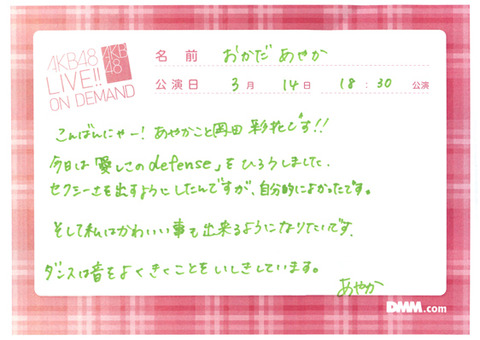 AKB48
LIVE!!
ON DEMAND
AKB
48
名前 おかだ あやか
公演日 3月 14日 18:30 公演
こんばんにゃー! あやかこと岡田 彩花です!!
今日は「愛しさのdefense」をひろうしました.
セクシーさを出すようにしたんですが、自分的によかったです。
そして私はかわいい事も出来るようになりたいです.
ダンスは音をよくきくことをいしきしています。
あやか
DMM.com